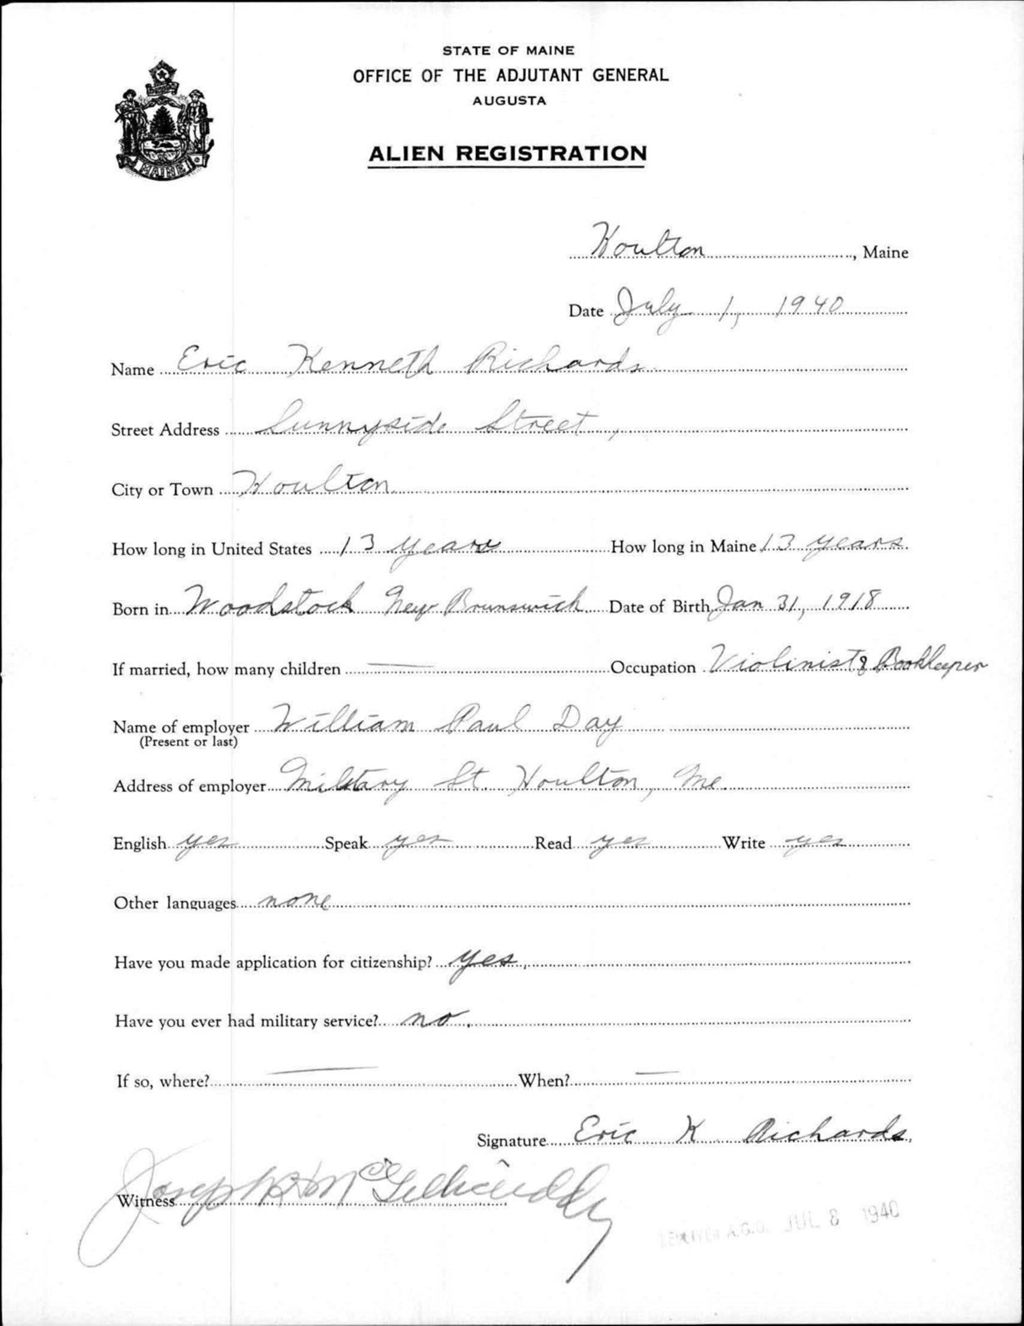 STATE OF MAINE
OFFICE OF THE ADJUTANT GENERAL
AUGUSTA
ALIEN REGISTRATION
MAINE
Houlton, Maine
Date July 1, 1940
Name Eric Kenneth Richards
Street Address Sunnyside Street,
City or Town Houlton
How long in United States 13 years How long in Maine 13 years
Born in Woodstock New Brunswick Date of Birth Jan 31, 1918
If married, how many children — Occupation Violinist & Bookkeeper
Name of employer William Paul Day
(Present or last)
Address of employer Military St. Houlton, Me.
English yes Speak yes Read yes Write yes
Other languages none
Have you made application for citizenship? yes.
Have you ever had military service? no.
If so, where? — When? —
Signature Eric K Richards.
Witness Joseph
A.G.O. JUL 8 1940